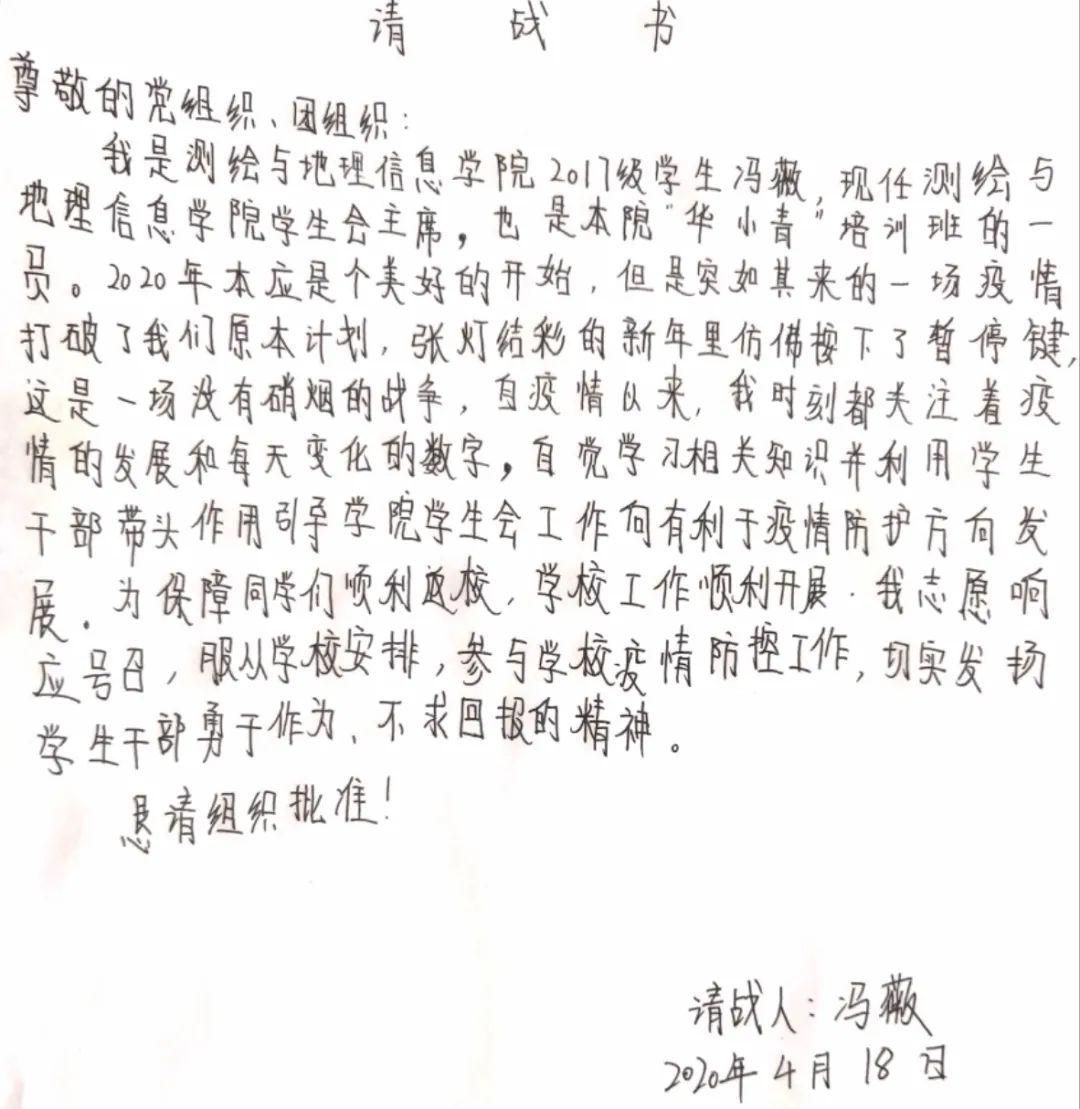 请战书
尊敬的党组织、团组织：
我是测绘与地理信息学院2017级学生冯薇，现任测绘与
地理信息学院学生会主席，也是本院“华小青”培训班的一
员。2020年本应是个美好的开始，但是突如其来的一场疫情
打破了我们原本计划，张灯结彩的新年里仿佛按下了暂停键，
这是一场没有硝烟的战争，自疫情以来，我时刻都关注着疫
情的发展和每天变化的数字，自觉学习相关知识并利用学生
干部带头作用引导学院学生会工作向有利于疫情防护方向发
展。为保障同学们顺利返校，学校工作顺利开展．我志愿响
应号召，服从学校安排，参与学校疫情防控工作，切实发扬
学生干部勇于作为、不求回报的精神。
恳请组织批准！
请战人：冯薇
2020年4月18日